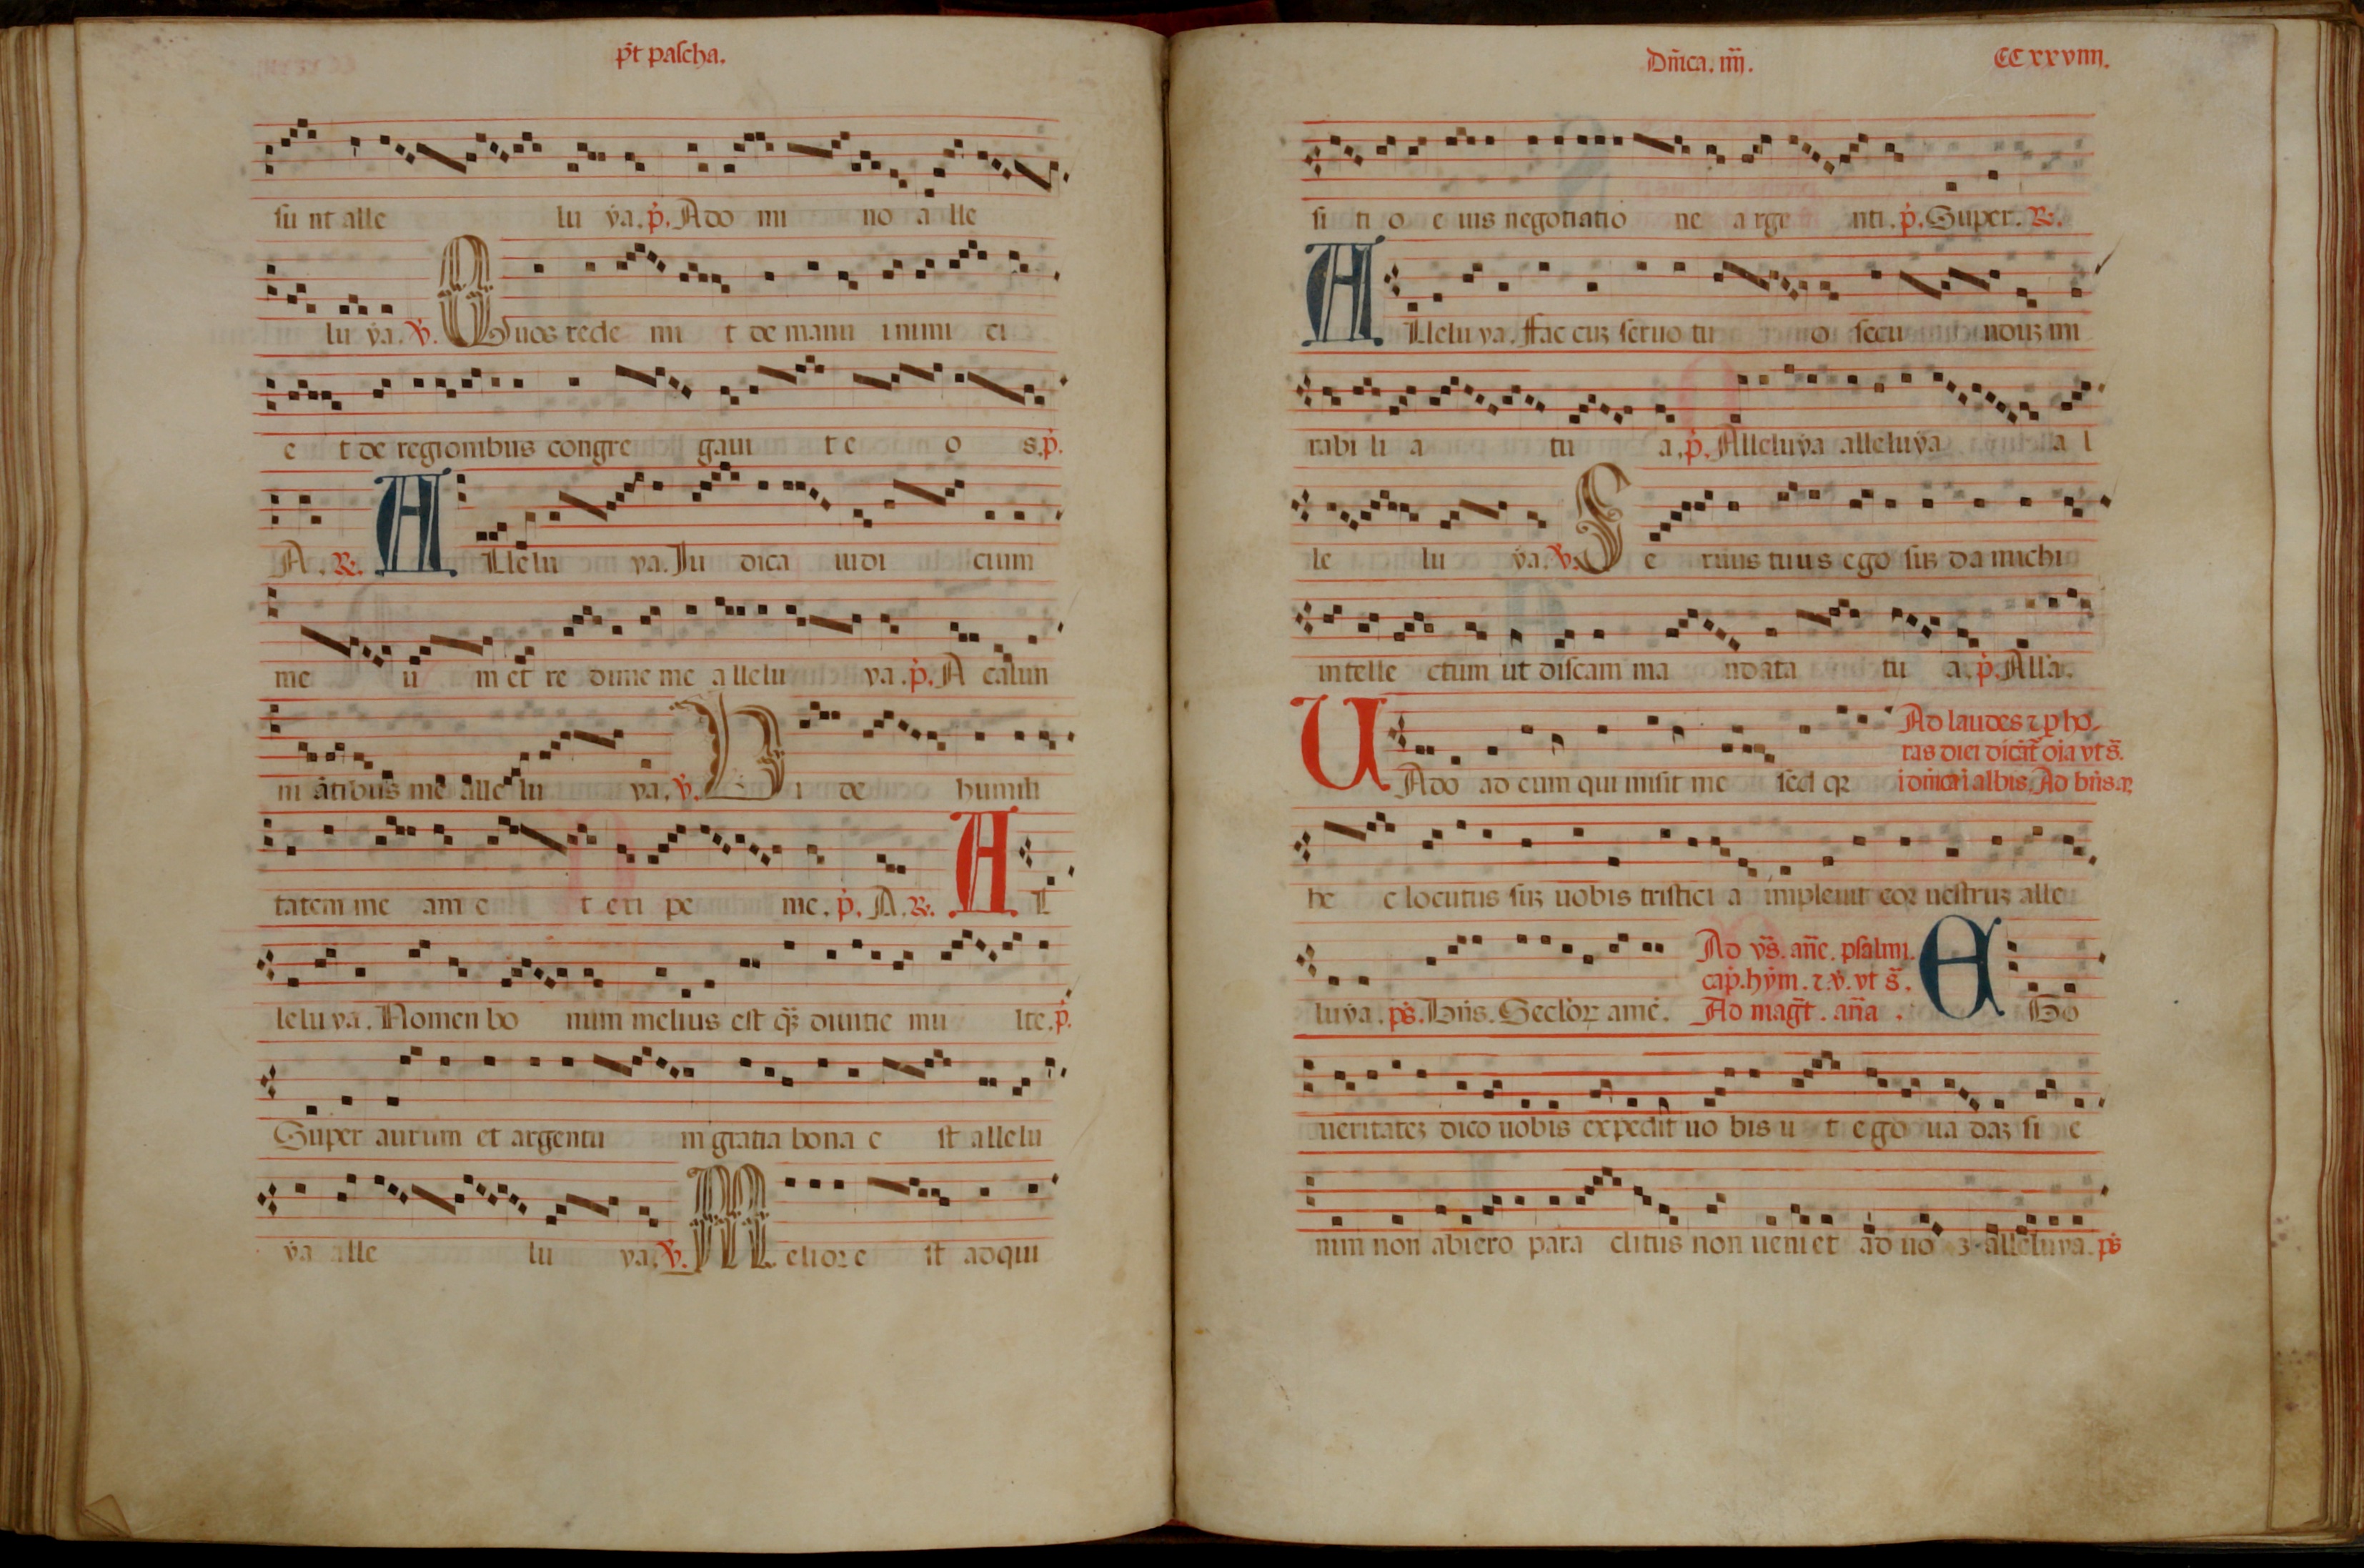 p̄t paſcha.
ſu nt alle lu ẏa. p̄. Ado mi no a lle
lu ẏa. V̄. Quos rede mi t de manu inimi ci
e t de regionibus congre gaui t e o s. p̄.
A. R. A Llelu ya. Iu dica iudi cium
me u m et re dime me a llelu ya. p̄. A calun
ni atibus me alle lu ya. v̄. Ui de humili
tatem me am e t eri pe me. p̄. A. R. A L
lelu ya. Nomen bo num melius eſt qȝ diuitie mu lte. p̄.
Super aurum et argentū m gratia bona e ſt allelu
ẏa alle lu ya. V̄. M elior e ſt adqui
Dn̄ica. iiij.
CCxxviiij.
ſi ti o e ius negotiatio ne a rge nti. p̄. Super. R.
A Llelu ya. ffac cuȝ ſeruo tu o ſecu nduȝ mi
rabi li a tu a. p̄. Alleluẏa alleluẏa a l
le lu ẏa. v̄. S e ruus tuus ego ſuȝ da michi
intelle ctum ut diſcam ma ndata tu a. p̄. All'a.
U Ado ad eum qui miſit me ſed qꝛ
Ad laudes ꞇ p ho-
ras diei dicūt' oīa vt s̄.
ī dn̄ica ī albis. Ad bn̄s. a
he c locutus ſuȝ uobis triſtici a impleuit coꝛ ueſtruȝ alle
luẏa. ps̄. Bn̄s. Sectoꝝ amē.
Ad vs̄. an̄e. pſalmi.
cap̄. hẏm. ꞇ. v̄. vt s̄.
Ad maḡt. an̄a.
E Go
ueritateȝ dico uobis expedit uo bis u t ego ua daȝ ſi e
nim non abiero para clitus non ueni et ad uo ȝ alleluẏa. ps̄